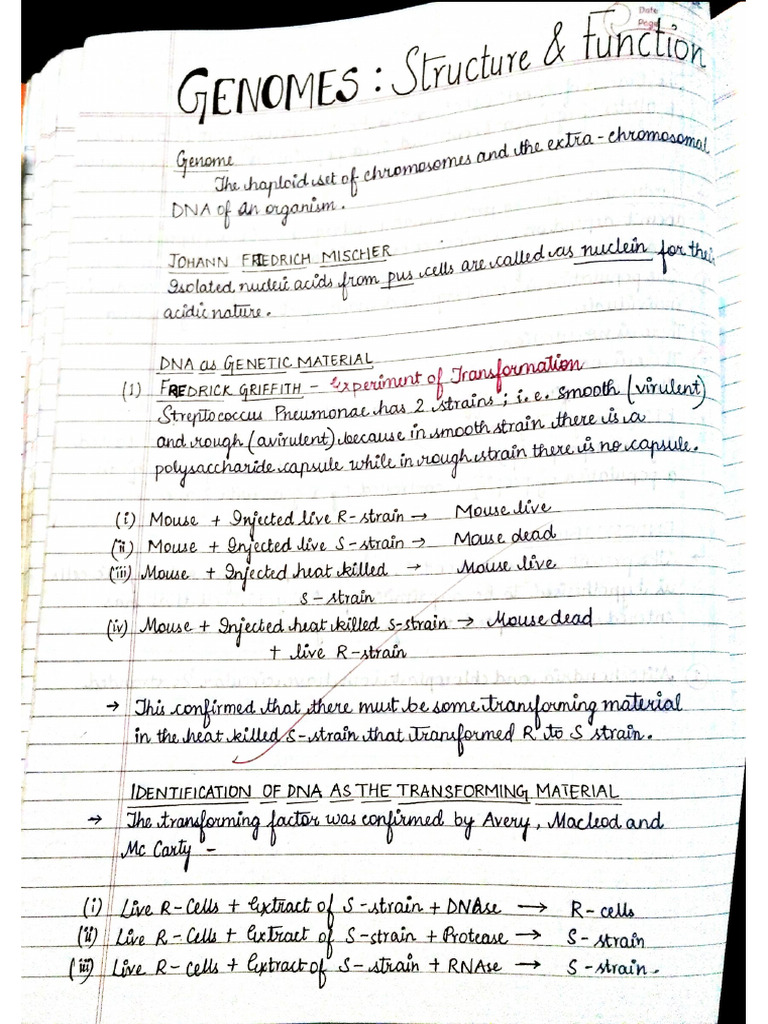 Date
Page
GENOMES : Structure & Function
Genome
The haploid set of chromosomes and the extra-chromosomal
DNA of an organism.
JOHANN FRIEDRICH MISCHER
Isolated nucleic acids from pus cells are called as nuclein for their
acidic nature.
DNA as GENETIC MATERIAL
(1) FREDRICK GRIFFITH - Experiment of Transformation
Streptococcus Pneumonae has 2 strains; i.e. smooth (virulent)
and rough (avirulent) because in smooth strain there is a
polysaccharide capsule while in rough strain there is no capsule.
(i) Mouse + Injected live R-strain → Mouse live
(ii) Mouse + Injected live S-strain → Mouse dead
(iii) Mouse + Injected heat killed → Mouse live
S-strain
(iv) Mouse + Injected heat killed S-strain → Mouse dead
+ live R-strain
→ This confirmed that there must be some transforming material
in the heat killed S-strain that transformed R to S strain.
IDENTIFICATION OF DNA AS THE TRANSFORMING MATERIAL
→ The transforming factor was confirmed by Avery, Macleod and
Mc Carty -
(i) Live R-Cells + Extract of S-strain + DNAse → R-cells
(ii) Live R-Cells + Extract of S-strain + Protease → S-strain
(iii) Live R-Cells + Extract of S-strain + RNAse → S-strain.